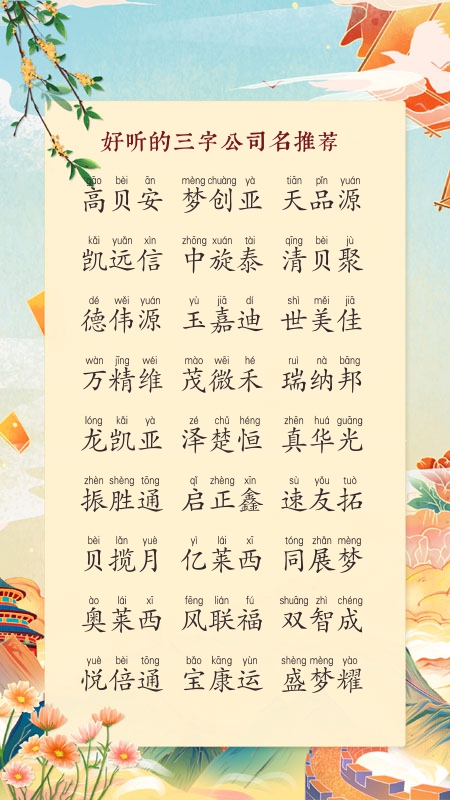 好听的三字公司名推荐
gāo bèi ān mèng chuàng yà tiān pǐn yuán
高贝安 梦创亚 天品源
kǎi yuǎn xìn zhōng xuán tài qīng bèi jù
凯远信 中旋泰 清贝聚
dé wěi yuán yù jiā dí shì měi jiā
德伟源 玉嘉迪 世美佳
wàn jīng wéi mào wēi hé ruì nà bāng
万精维 茂微禾 瑞纳邦
lóng kǎi yà zé chǔ héng zhēn huá guāng
龙凯亚 泽楚恒 真华光
zhèn shèng tōng qǐ zhèng xīn sù yǒu tuò
振胜通 启正鑫 速友拓
bèi lǎn yuè yì lái xī tóng zhǎn mèng
贝揽月 亿莱西 同展梦
ào lái xī fēng lián fú shuāng zhì chéng
奥莱西 风联福 双智成
yuè bèi tōng bǎo kāng yùn shèng mèng yào
悦倍通 宝康运 盛梦耀